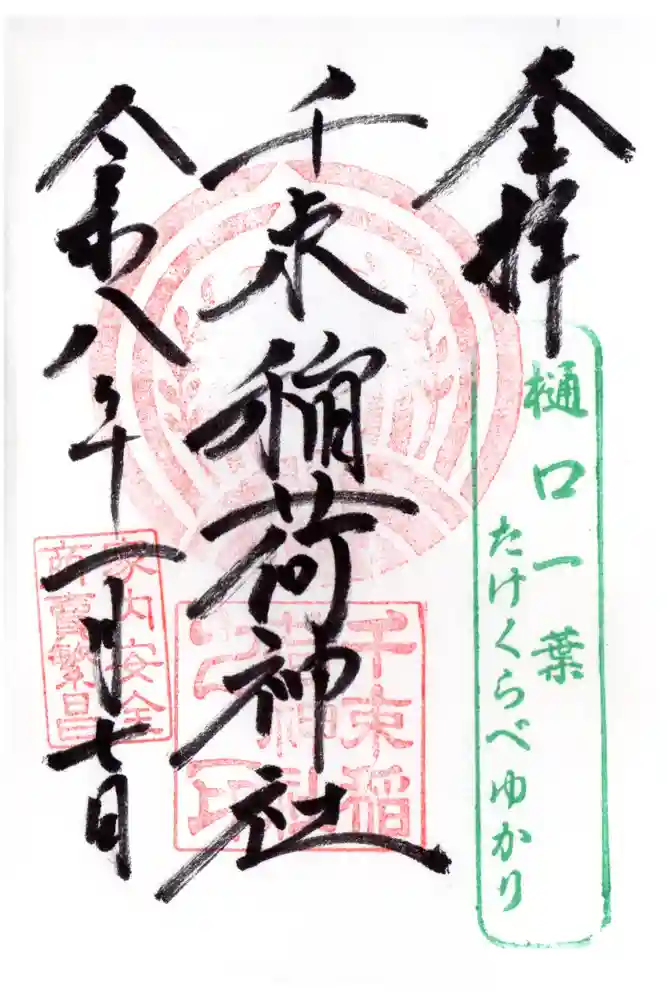 奉拝
樋口一葉
たけくらべゆかり
千束稲荷神社
千束稲
荷神社
之印
令和八年一月七日
家内安全
商売繁昌